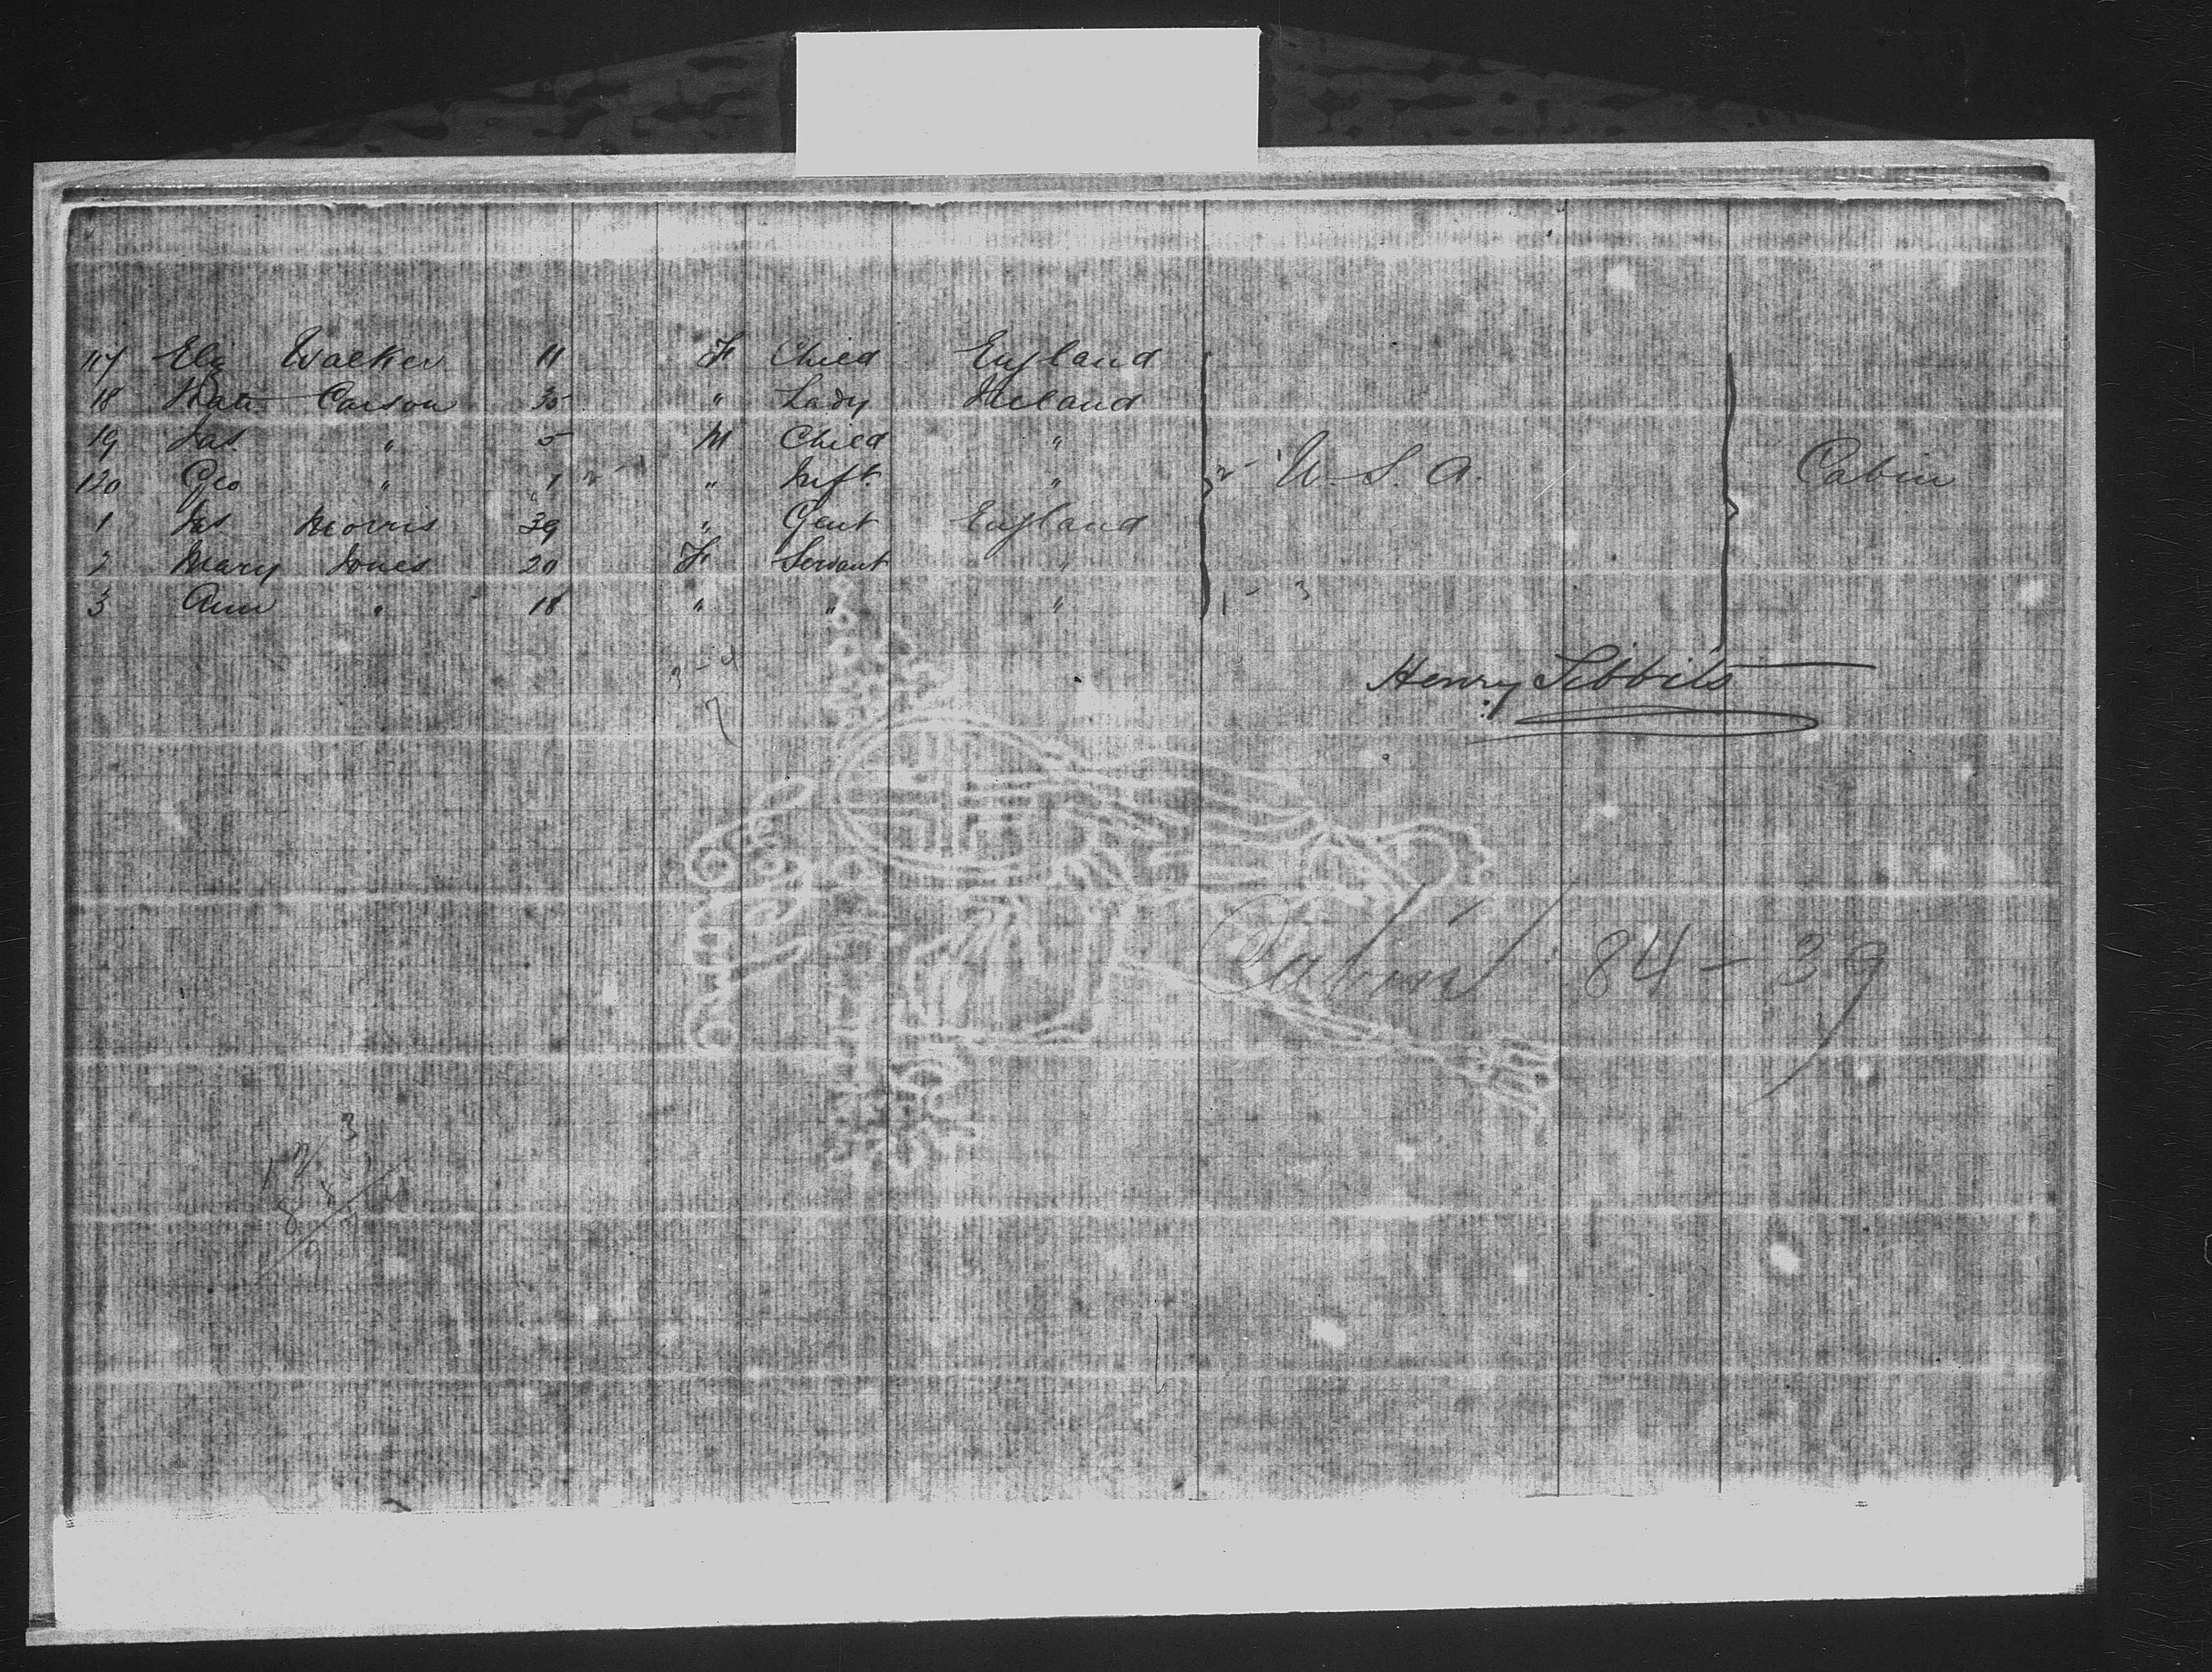 117 Eliz Walker 11 F Child England
18 Kate Carson 35 " Lady Ireland
19 Jas. " 5 M Child "
120 Geo " 1 " Inft "
1 Jas Morris 39 " Gent England
2 Mary Jones 20 F Servant "
3 Ann " 18 " " "
U.S.A.
Cabin
Henry Sibbits
Cabin 84-39